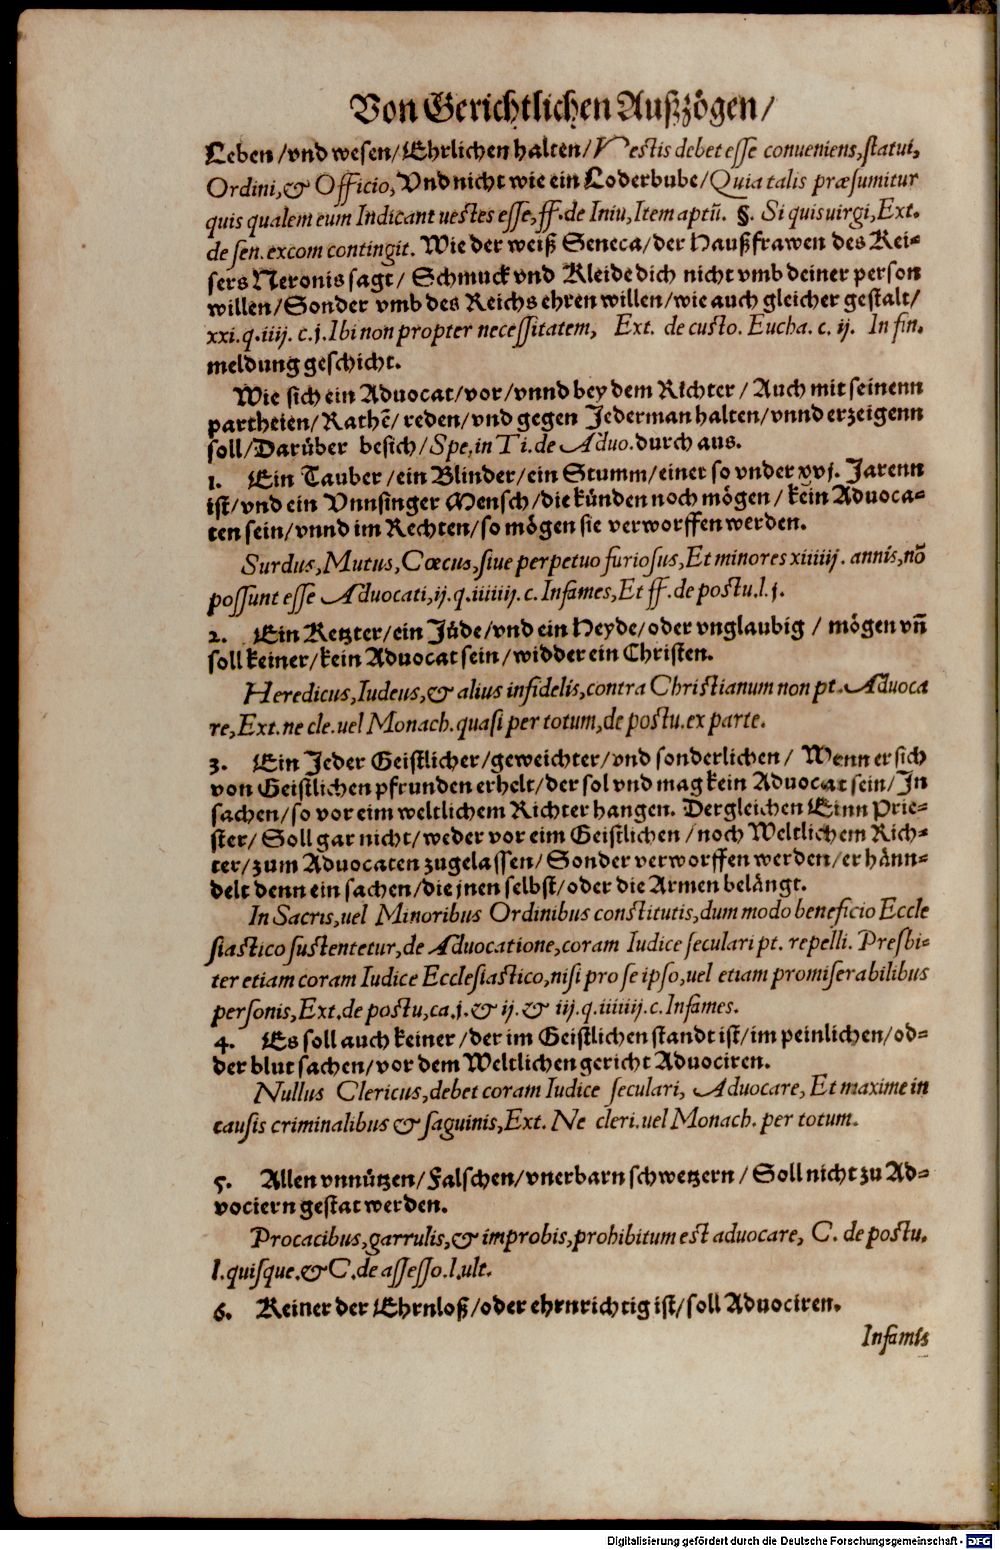 Von Gerichtlichen Außzögen/
Leben/vnd wesen/Ehrlichen halten/Vestis debet esse conueniens, statui,
Ordini,& Officio, Vnd nicht wie ein Loderbube/Quia talis præsumitur
quis qualem eum Indicant uestes esse, ff. de Iniu, Item aptū. §. Si quis uirgi, Ext.
de sen. excom contingit. Wie der weiß Seneca/der Haußfrawen des Kei⸗
sers Neronis sagt/ Schmuck vnd Kleide dich nicht vmb deiner person
willen/Sonder vmb des Reichs ehren willen/wie auch gleicher gestalt/
xxi.q.iiij. c.j. Ibi non propter necessitatem, Ext. de custo. Eucha. c. ij. In fin.
meldung geschicht.
Wie sich ein Aduocat/vor/vnnd bey dem Richter/ Auch mit seinenn
partheien/Rathē/ reden/vnd gegen Jederman halten/vnnd erzeigenn
soll/Darüber besich/Spe, in Ti. de Aduo. durch aus.
1. Ein Tauber/ein Blinder/ein Stumm/einer so vnder xvj. Jarenn
ist/vnd ein Vnnsinger Mensch/die künden noch mögen/ kein Aduoca⸗
ten sein/vnnd im Rechten/so mögen sie verworffen werden.
Surdus, Mutus, Cœcus, siue perpetuo furiosus, Et minores xiiiiij. annis, nō
possunt esse Aduocati, ij.q.iiiiiij.c. Infames, Et ff. de postu.l.j.
2. Ein Ketzter/ein Jüde/vnd ein Heyde/oder vnglaubig / mögen vn̄
soll keiner/kein Aduocat sein/widder ein Christen.
Heredicus, Iudeus,& alius infidelis, contra Christianum non pt. Aduoca
re, Ext. ne cle. uel Monach. quasi per totum, de postu. ex parte.
3. Ein Jeder Geistlicher/geweichter/vnd sonderlichen/ Wenn er sich
von Geistlichen pfrunden erhelt/der sol vnd mag kein Aduocat sein/In
sachen/so vor eim weltlichem Richter hangen. Dergleichen Einn Prie⸗
ster/ Soll gar nicht/weder vor eim Geistlichen/noch Weltlichem Rich⸗
ter/zum Aduocaten zugelassen/Sonder verworffen werden/er hänn⸗
delt denn ein sachen/die jnen selbst/oder die Armen belängt.
In Sacris, uel Minoribus Ordinibus constitutis, dum modo beneficio Eccle
siastico sustentetur, de Aduocatione, coram Iudice seculari pt. repelli. Presbi⸗
ter etiam coram Iudice Ecclesiastico, nisi pro se ipso, uel etiam promiserabilibus
personis, Ext. de postu, ca.j.& ij.& iij.q.iiiiiij.c. Infames.
4. Es soll auch keiner/der im Geistlichen standt ist/im peinlichen/od⸗
der blut sachen/vor dem Weltlichen gericht Aduociren.
Nullus Clericus, debet coram Iudice seculari, Aduocare, Et maxime in
causis criminalibus & saguinis, Ext. Ne cleri. uel Monach. per totum.
5. Allen vnnützen/Falschen/vnerbarn schwetzern/ Soll nicht zu Ad⸗
vociern gestat werden.
Procacibus, garrulis,& improbis, prohibitum est aduocare, C. de postu.
l. quisque.& C. de assesso.l.ult.
6. Keiner der Ehrnloß/oder ehrnrichtig ist/soll Aduociren.
Infamis
Digitalisierung gefördert durch die Deutsche Forschungsgemeinschaft - DFG